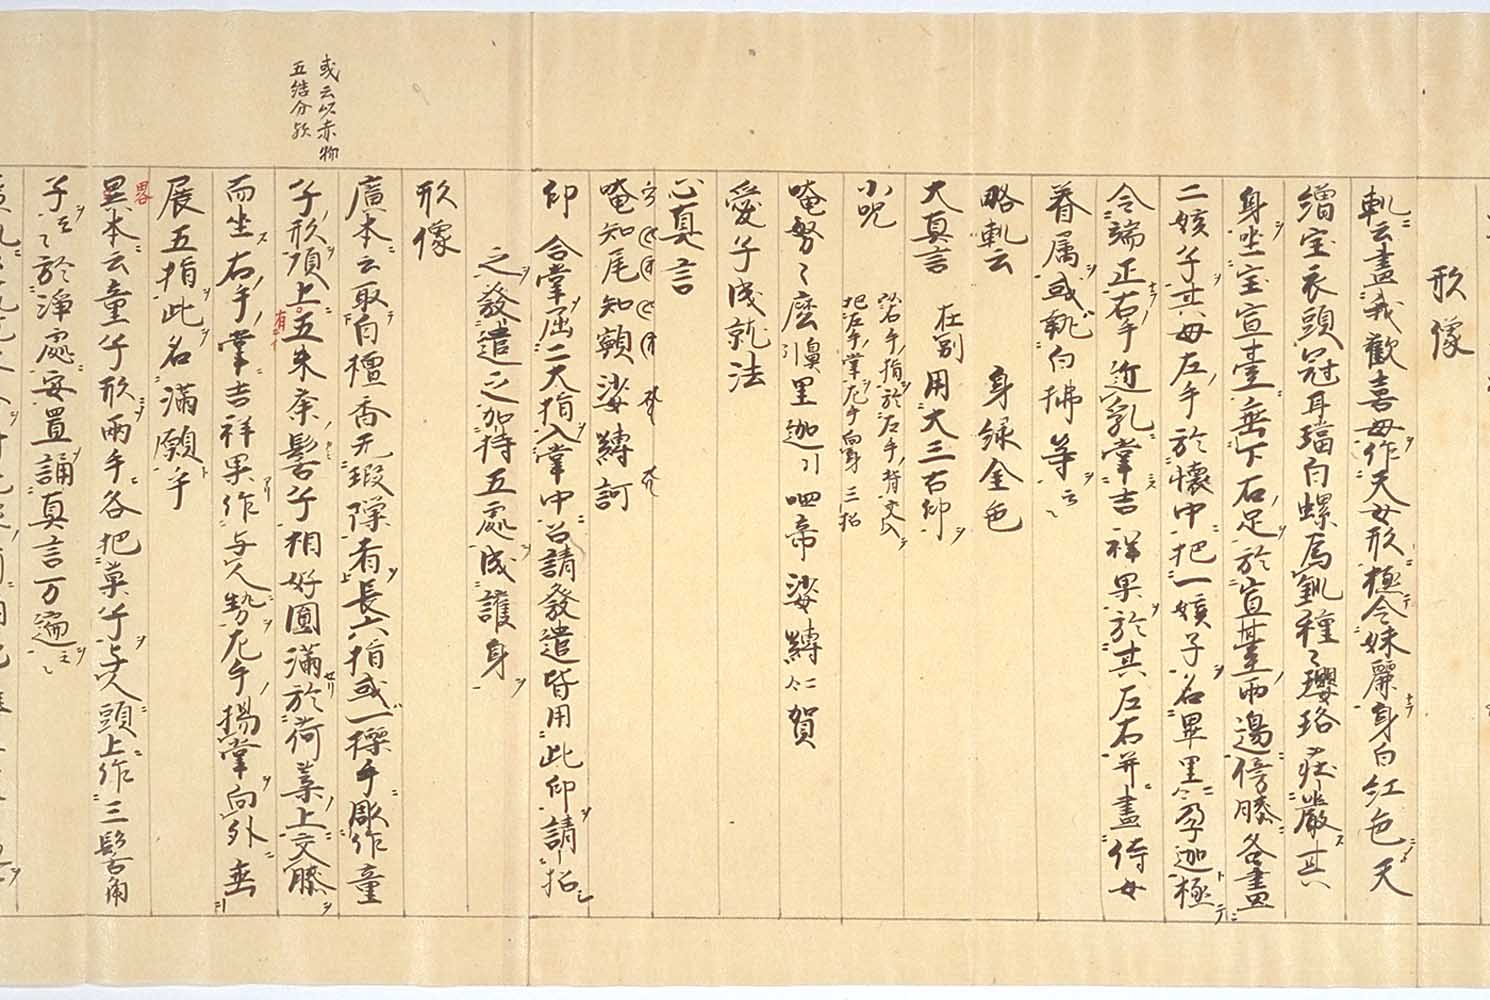 形像
軌云畫我歡喜母作天女形極令姝麗身白紅色天
繒宝衣頭冠耳璫白螺為釧種々瓔珞荘嚴其
身坐宝宣臺垂下右足於宣臺兩邊傍膝各畫
二孩子其母左手於懐中把一孩子名畢里孕迦極
令端正右手近乳掌吉祥果於其左右并畫侍女
眷属或執白拂等云々
略軌云 身緑金色
大真言 在別 用大三古印
小呪
以右手指於左手
把左手掌左手向身三招
唵弩々麼哩迦呬帝娑縛賀
愛子成就法
心真言
唵知尾知顙娑縛訶
印 合掌屈二大指入掌中召請發遣皆用此印請招
之發遣之加持五處成護身
形像
廣本云取白檀香无瑕隙者長六指或一搩手彫作童
子形頂上五朱奈髻子相好圓滿於荷葉上交膝
或云以赤物
五結分歟
而坐右手掌吉祥果作与人勢左手揚掌向外垂
展五指此名滿願手
略
異本云童子形兩手各把菓子与人頭上作三髻角
子云々於淨處安置誦真言万遍云々